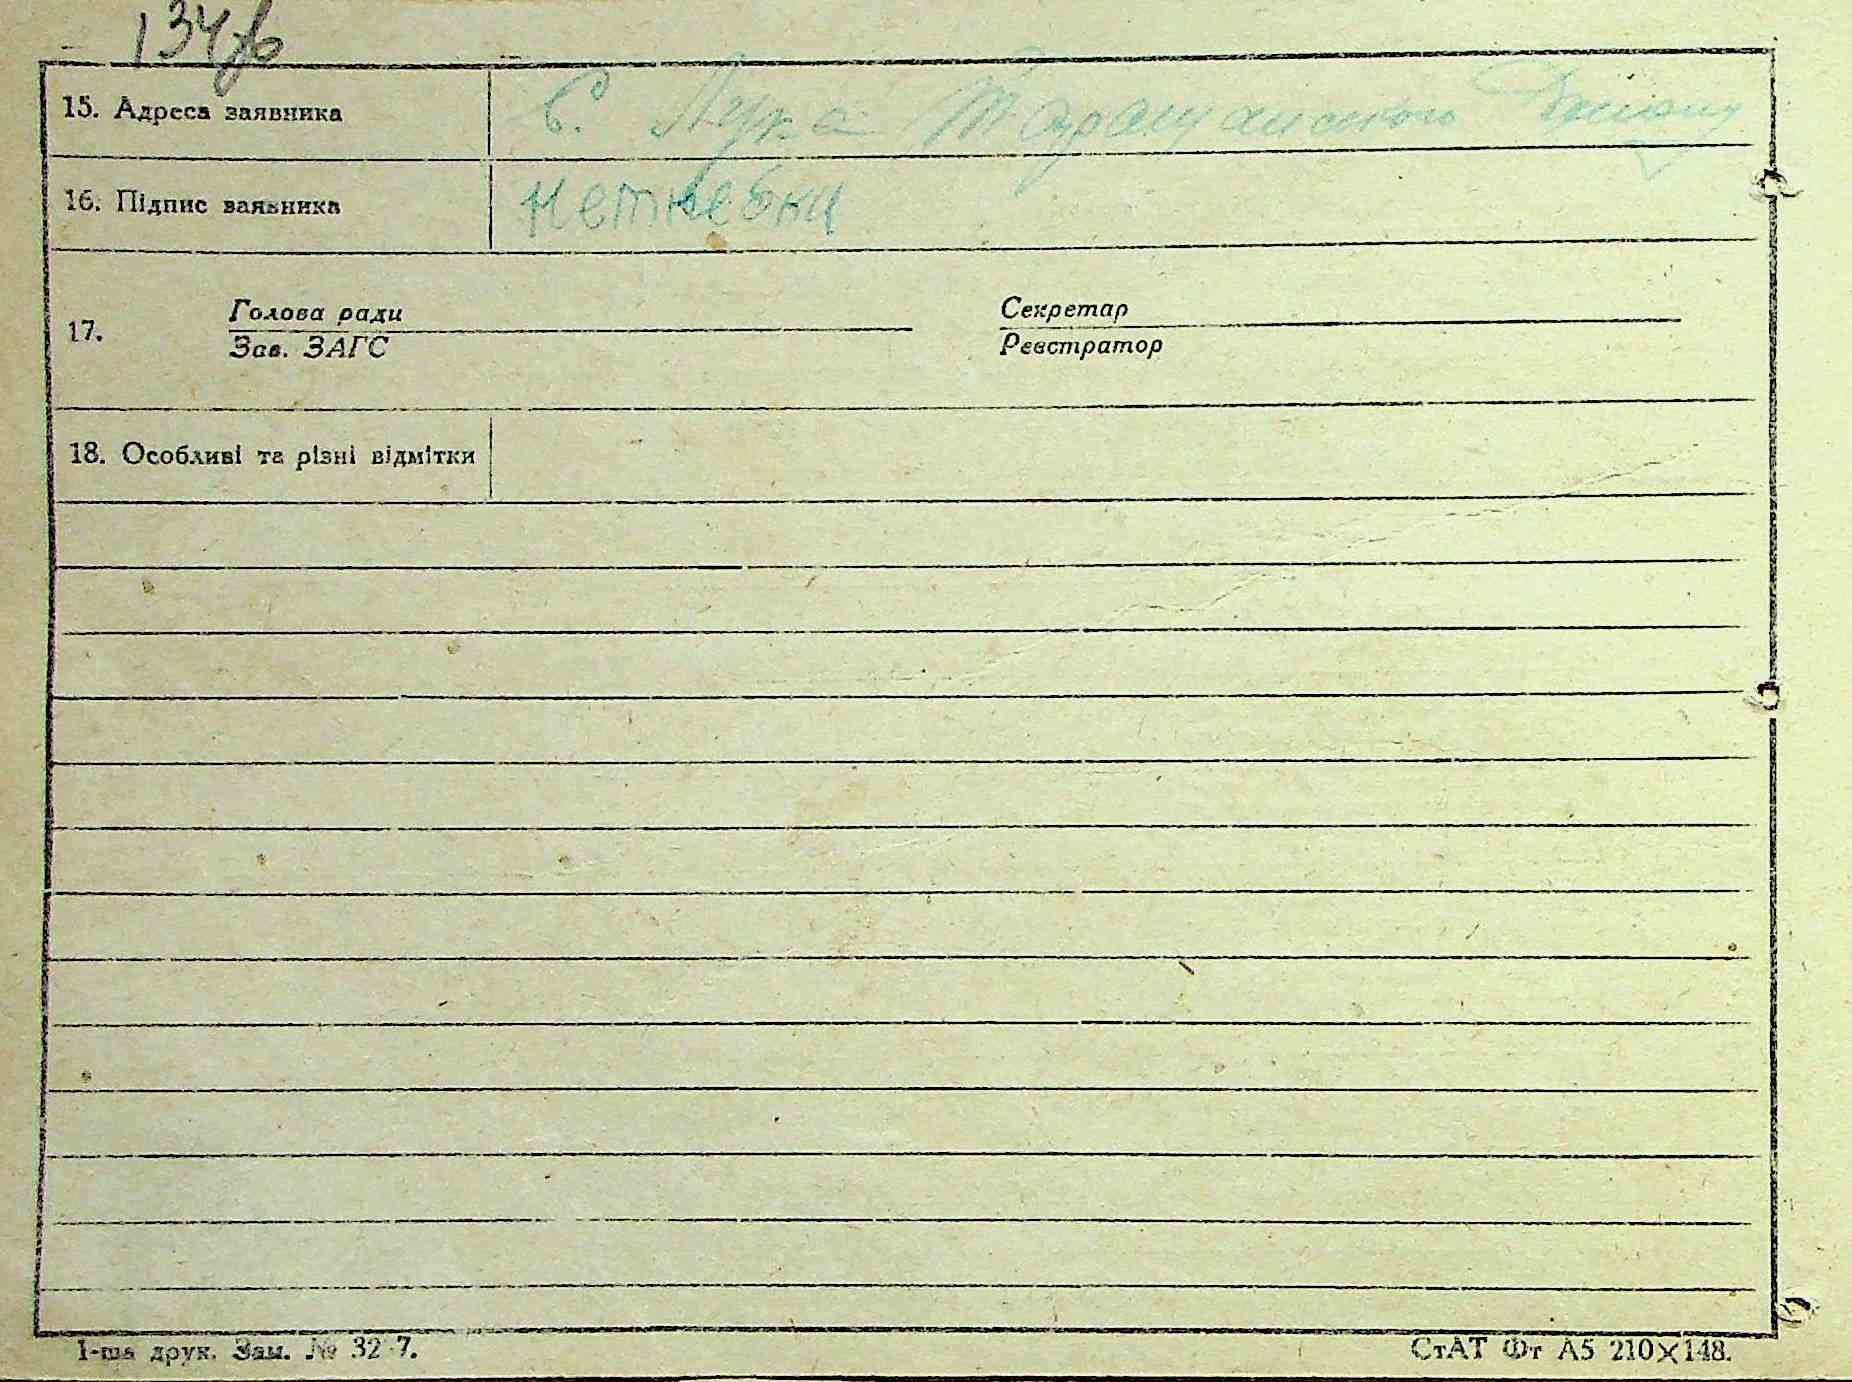 134
15. Адреса заявника С. Лука Таращанского Району
16. Підпис заявника
17. Голова ради Секретар
Зав. ЗАГС Реєстратор
18. Особливі та різні відмітки
1-ша друк. Зам. № 32 7. СтАТ Фт А5 210×148.